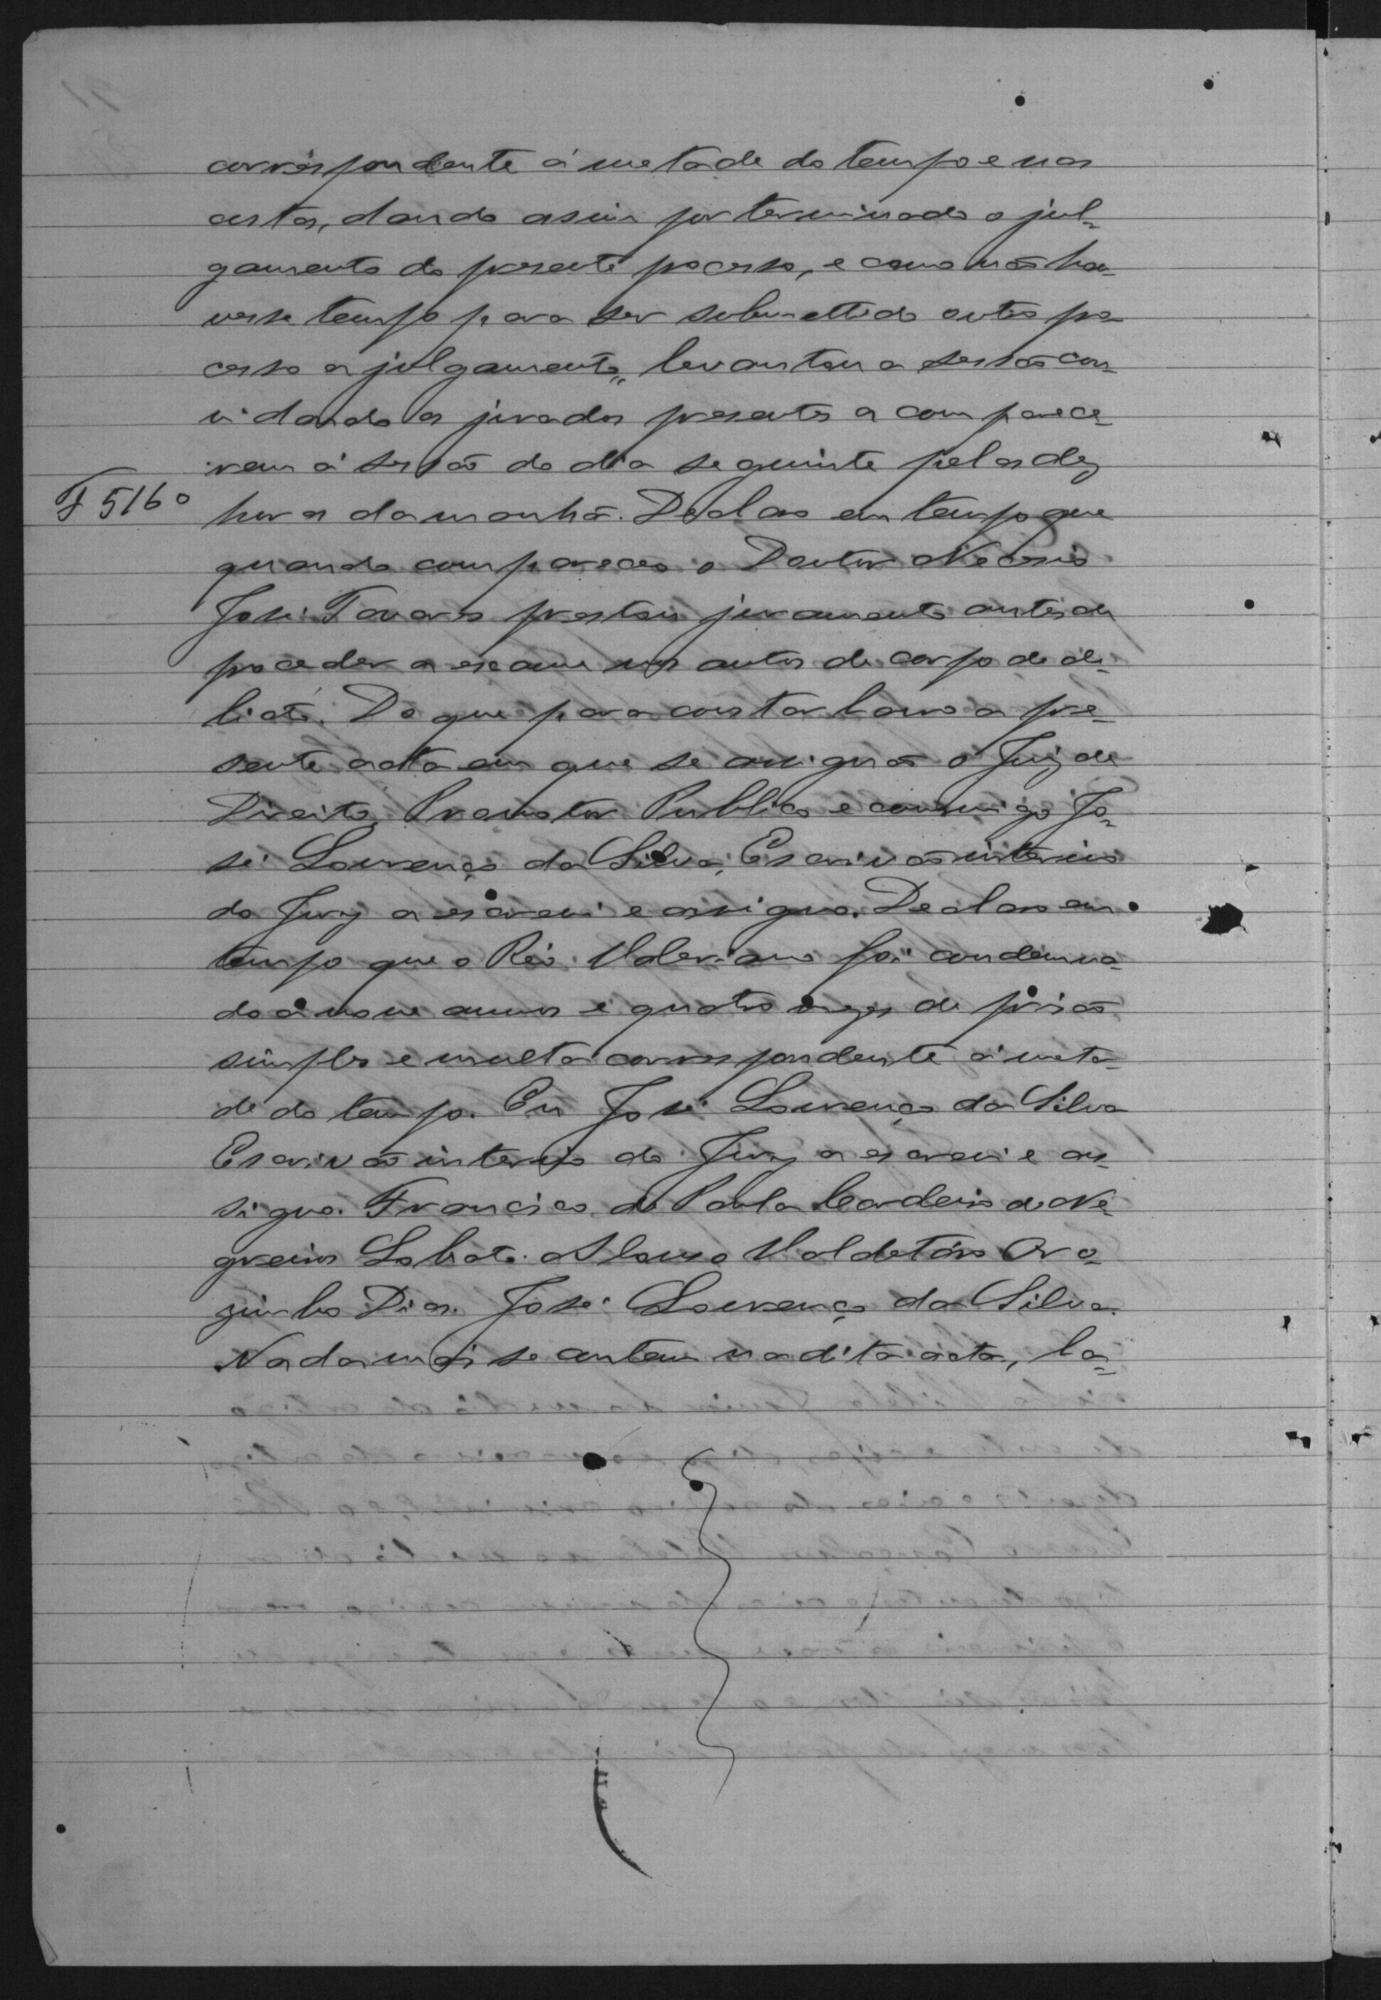 correspondente á metade do tempo e nas
custas, dando assim por terminado o jul-
gamento do presente processo, e como não hou-
vesse tempo para ser submettido outro pro-
cesso a julgamento, levantou a sessão con-
vidando os jurados presentes a comparece-
rem á sessão do dia seguinte pelas dez
F 516º horas da manhã. Declaro em tempo que
quando compareceo o Doutor Nicesio
José Tavares prestou juramento antes de
proceder a exame nos autos de corpo de de-
licto. Do que para constar lavro a pre-
sente acta em que se assignão o Juiz de
Direito, Promotor Publico e commigo Jo-
sé Lourenço da Silva, Escrivão interino
do Jury a escrevi e assigno. Declaro em
tempo que o Réo Valeriano foi condemna-
do á nove annos e quatro mezes de prisão
simples e multa correspondente á meta-
de do tempo. Eu José Lourenço da Silva
Escrivão interino do Jury a escrevi e as-
signo. Francisco de Paula Cordeiro de Ne-
greiros Lobato. Alonso Valdetáro
Dias. José Lourenço da Silva.
Nada mais se contem na dita acta, la-